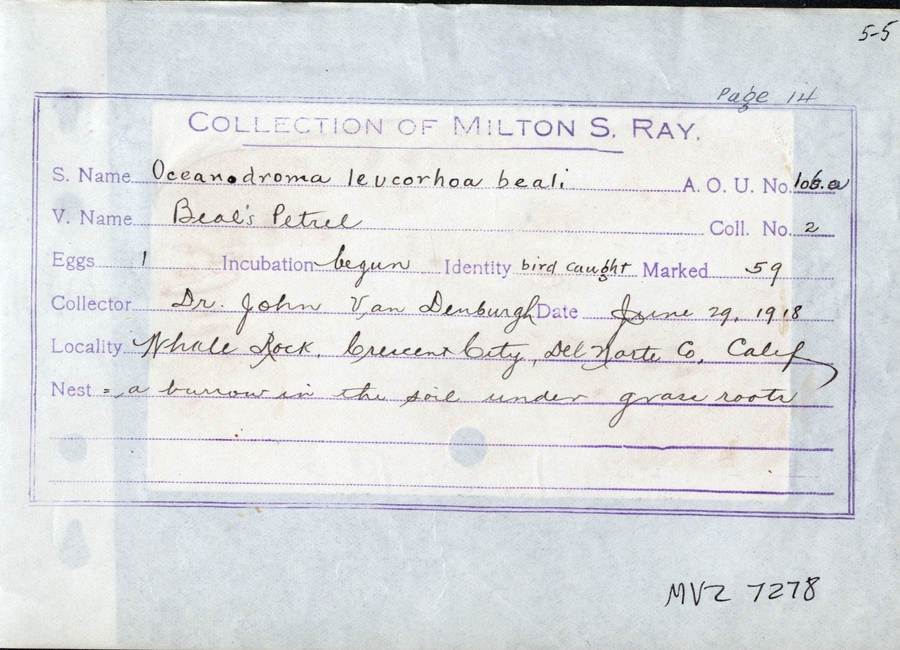 5-5
Page 14
COLLECTION OF MILTON S. RAY.
S. Name Oceanodroma leucorhoa beali A. O. U. No. 106.a
V. Name Beal's Petrel Coll. No. 2
Eggs 1 Incubation begun Identity bird caught Marked 59
Collector Dr. John Van Denburgh Date June 29, 1918
Locality Whale Rock, Crescent City, Del Norte Co, Calif
Nest = a burrow in the soil under grass roots
MVZ 7278